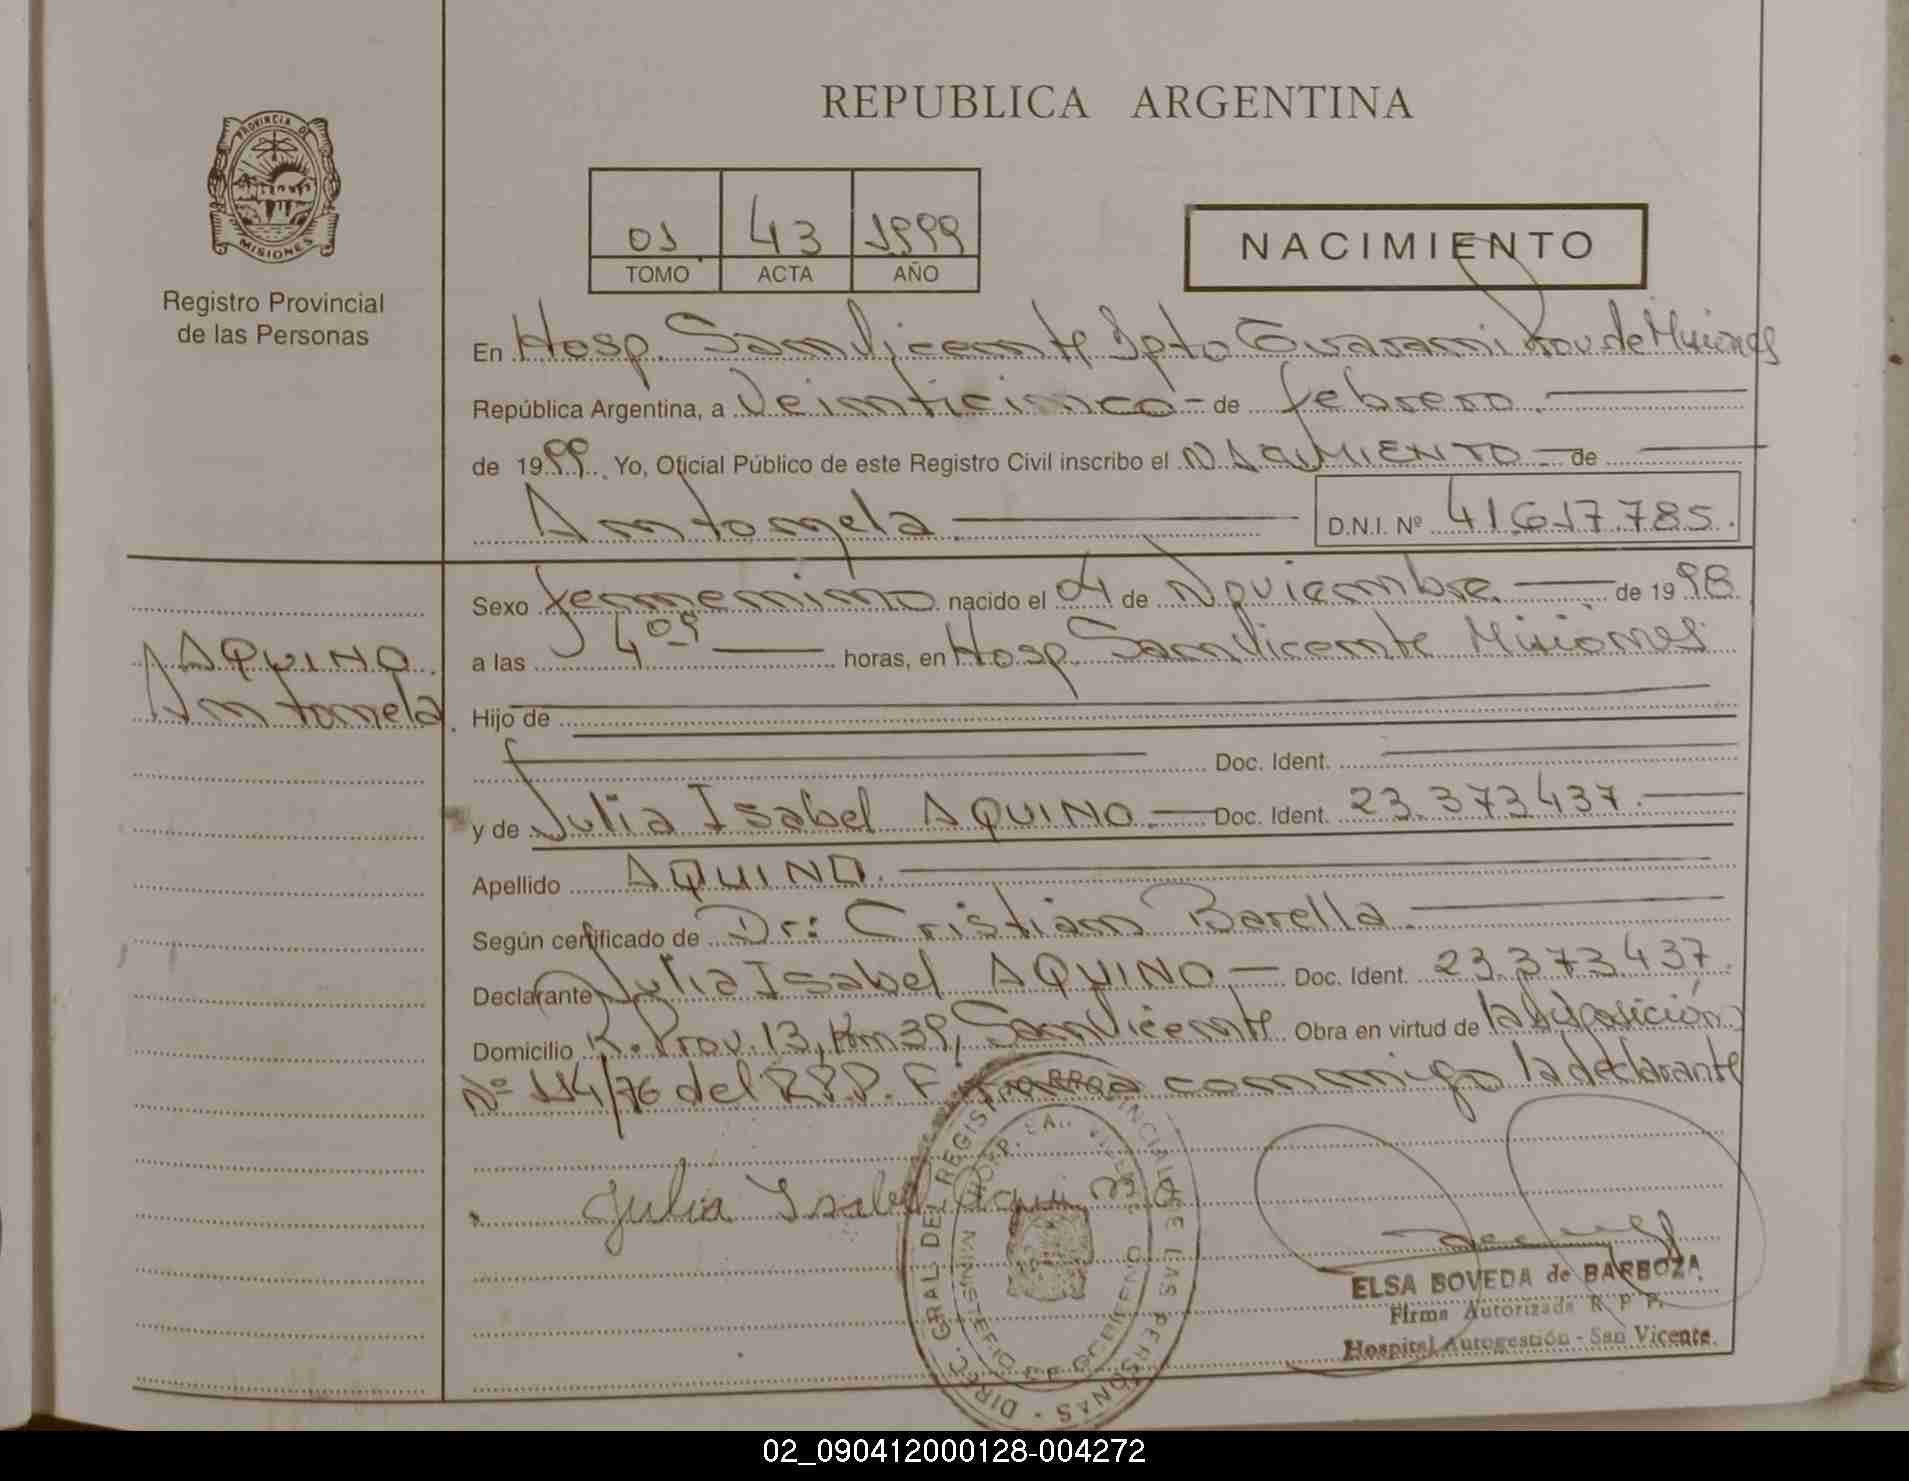 REPUBLICA ARGENTINA
PROVINCIA DE
MISIONES
Registro Provincial
de las Personas
01 43 1999
TOMO ACTA AÑO
NACIMIENTO
En Hosp. San Vicente Dpto Guarani Prov de Misiones
República Argentina, a Veinticinco - de febrero.
de 1999. Yo, Oficial Público de este Registro Civil inscribo el NACIMIENTO - de
Antonela D.N.I. Nº 41617785.
Sexo femenino nacido el 04 de Noviembre. de 1998
AQUINO
Antonela.
a las 4 05 horas, en Hosp. San Vicente Misiones
Hijo de
Doc. Ident.
y de Julia Isabel AQUINO. Doc. Ident. 23.373437.
Apellido AQUINO.
Según certificado de Dr: Cristian Barella.
Declarante Julia Isabel AQUINO - Doc. Ident. 23.373437.
Domicilio R. Prov. 13, Km 39, San Vicente Obra en virtud de la disposición
Nº 114/76 del R.P.P. Firma conmigo la declarante
Julia Isabel Aquino
DIREC. GRAL DEL REGISTRO PROVINCIAL DE LAS PERSONAS
MINISTERIO DE GOBIERNO
ELSA BOVEDA de BARBOZA
Firma Autorizada R P P.
Hospital Autogestión - San Vicente.
02_090412000128-004272